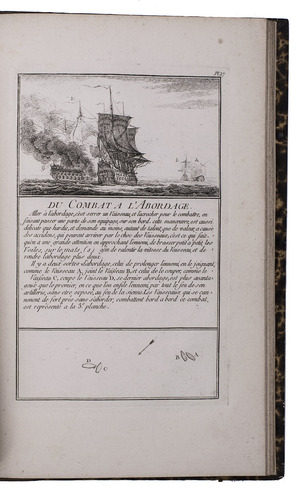 Pl. 27
DU COMBAT A L'ABORDAGE.
Aller à l'abordage, c'est serrer un Vaisseau, et l'acrocher pour le combattre, en
faisant passer une partie de son equipage, sur son bord. cette manœuvre, est aussi
délicate que hardie, et demande au moins, autant de talant, que de valeur, a cause
des accidens, qui peuvent arriver par le choc des Vaisseaux; c'est ce qui fait
qu'on a une grande attention en approchant l'ennemi, de brasser
Voiles, sur le mats afin de ralentir la vitesse du Vaisseau, et de
rendre l'abordage plus doux.
Il y a deux sortes d'abordage, celui de prolonger l'ennemi, en le joignant,
comme le Vaisseau A, joint le Vaisseau B, et celui de le couper, comme le
Vaisseau C, coupe le Vaisseau D, ce dernier abordage, est plus avanta-
geux que le premier, en ce que l'on enfile l'ennemi, par tout le feu de son
artillerie, sans être exposé, au feu de la sienne. Les Vaisseaux qui se can-
nonent de fort près sans s'aborder, combattent bord a bord ce combat,
est representé a la planche.
D
C
B
A